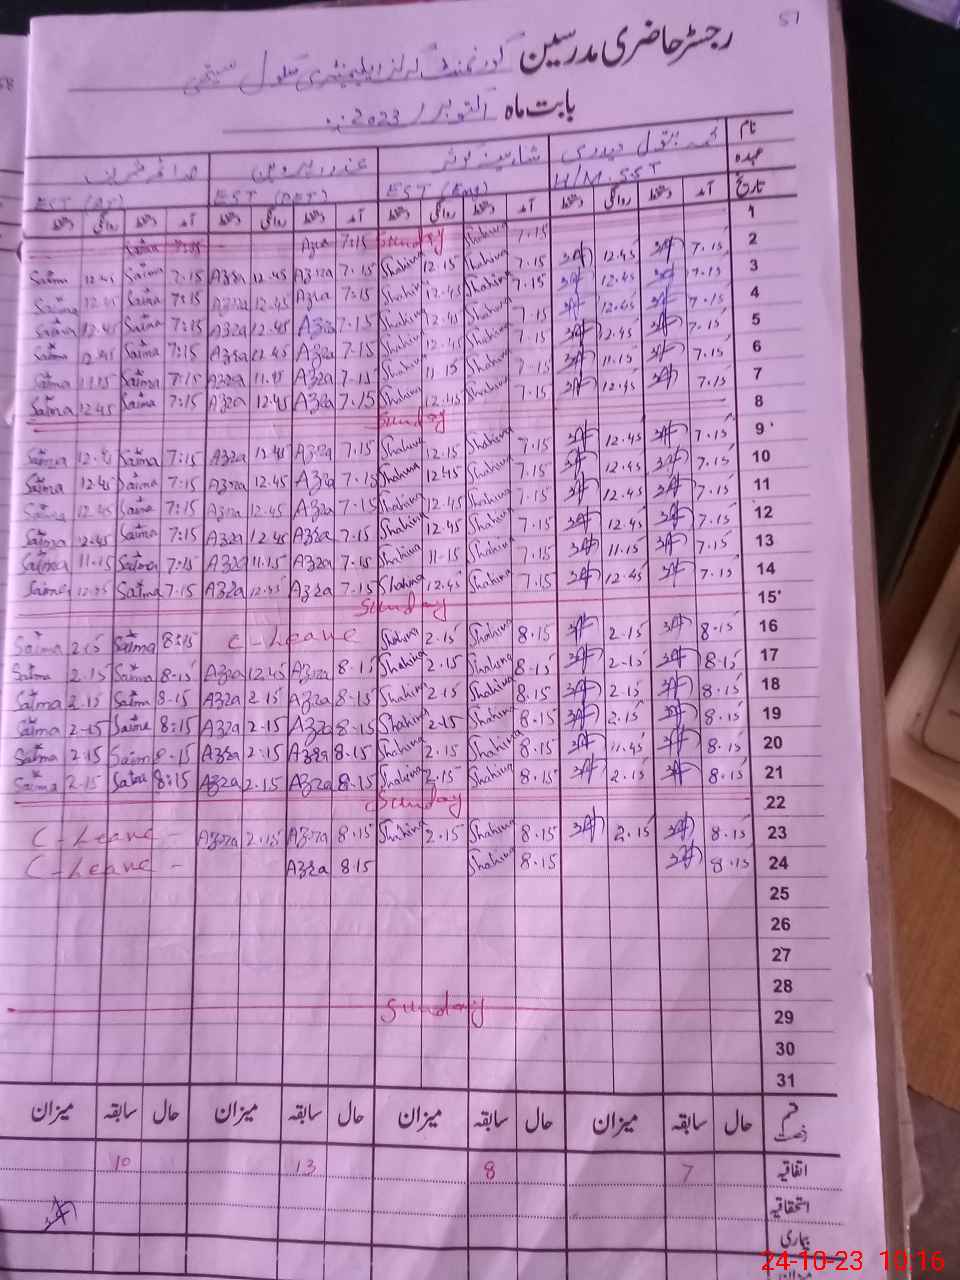 51
رجسٹر حاضری مدرسین گورنمنٹ گرلز ایلیمنٹری سکول
بابت ماہ اکتوبر / 2023ء
نام
عہدہ H/M. SST EST (Eng) EST (DET) EST
تاریخ آمد دستخط روانگی دستخط آمد دستخط روانگی دستخط آمد دستخط روانگی دستخط آمد دستخط روانگی دستخط
1 Sunday
2 7.15 12.45 7.15 Shahina 12.15 Shahina 7:15 Azra 12.45 Azra 7:15 Saima 12.45 Saima
3 7.15 12.45 7.15 Shahina 12.45 Shahina 7.15 Azra 12.45 Azra 7:15 Saima 12.45 Saima
4 7.15 12.45 7.15 Shahina 12.45 Shahina 7.15 Azra 12.45 Azra 7:15 Saima 12.45 Saima
5 7.15 12.45 7.15 Shahina 12.45 Shahina 7.15 Azra 12.45 Azra 7:15 Saima 12.45 Saima
6 7.15 11.15 7.15 Shahina 11.15 Shahina 7.15 Azra 11.45 Azra 7:15 Saima 11.15 Saima
7 7.15 12.45 7.15 Shahina 12.45 Shahina 7.15 Azra 12.45 Azra 7:15 Saima 12.45 Saima
8 Sunday
9 7.15 12.45 7.15 Shahina 12.15 Shahina 7.15 Azra 12.45 Azra 7:15 Saima Saima
10 7.15 12.45 7.15 Shahina 12.45 Shahina 7.15 Azra 12.45 Azra 7:15 Saima 12.45 Saima
11 7.15 12.45 7.15 Shahina 12.45 Shahina 7.15 Azra 12.45 Azra 7:15 Saima 12.45 Saima
12 7.15 12.45 7.15 Shahina 12.45 Shahina 7.15 Azra 12.45 Azra 7:15 Saima 12.45 Saima
13 7.15 11.15 7.15 Shahina 11-15 Shahina 7.15 Azra 11.15 Azra 7:15 Saima 11-15 Saima
14 7.15 12.45 7.15 Shahina 12.45 Shahina 7.15 Azra 12.45 Azra 7.15 Saima 12.45 Saima
15 Sunday
16 8.15 2.15 8.15 Shahina 2.15 Shahina C-Leave 8:15 Saima 2.15 Saima
17 8.15 2-15 8.15 Shahina 2.15 Shahina 8.15 Azra 12.45 Azra 8-15 Saima 2.15 Saima
18 8.15 2.15 8.15 Shahina 2.15 Shahina 8.15 Azra 2.15 Azra 8-15 Saima 2.15 Saima
19 8.15 2.15 8.15 Shahina 2.15 Shahina 8.15 Azra 2.15 Azra 8:15 Saima 2-15 Saima
20 8.15 11.45 8.15 Shahina 2.15 Shahina 8.15 Azra 2:15 Azra 8.15 Saima 2.15 Saima
21 8.15 2.15 8.15 Shahina 2.15 Shahina 8.15 Azra 2.15 Azra 8:15 Saima 2.15 Saima
22 Sunday
23 8.15 2.15 8.15 Shahina 2.15 Shahina 8.15 Azra 2.15 Azra C-Leave -
24 8.15 8.15 Shahina 8.15 Azra C-Leave -
25
26
27
28
29 Sunday
30
31
قسم رخصت حال سابقہ میزان حال سابقہ میزان حال سابقہ میزان حال سابقہ میزان
اتفاقیہ 7 8 13 10
استحقاقیہ
بیماری
24-10-23 10:16